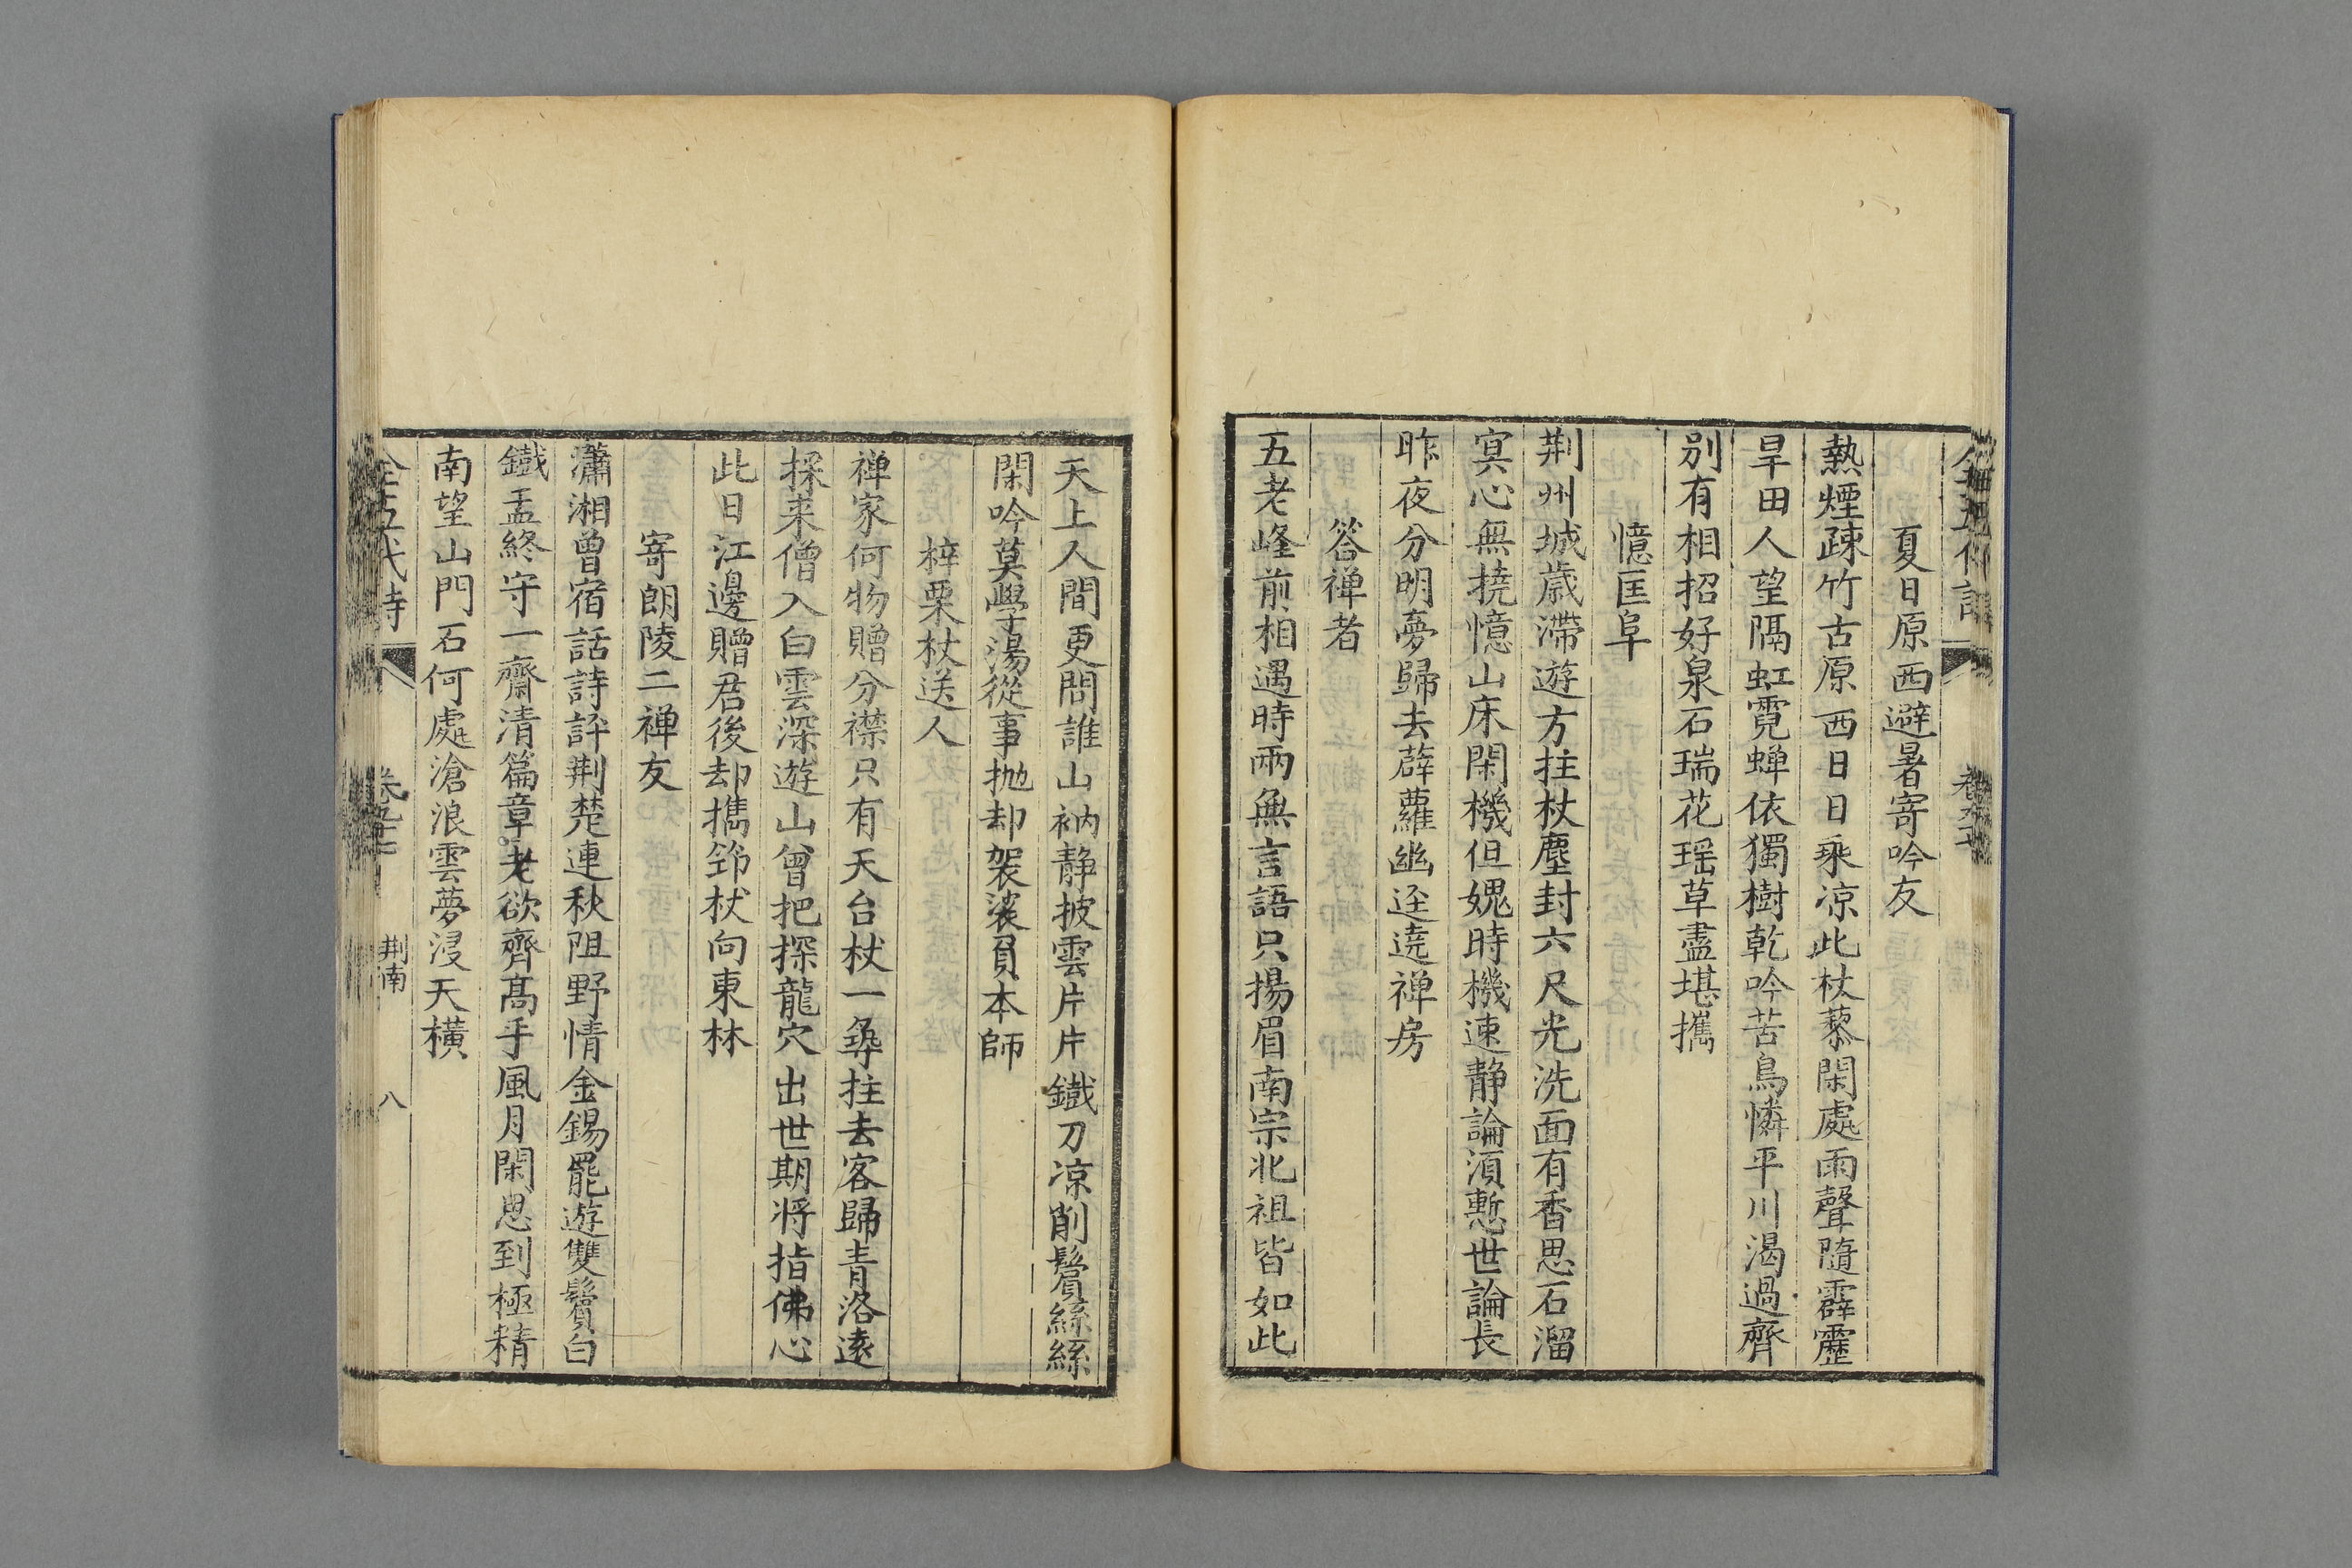 夏日原西避暑寄吟友
熱煙疎竹古原西日日乘凉此杖藜閑處雨聲隨霹靂
旱田人望隔虹霓蝉依獨樹乾吟苦鳥憐平川渴過齊
別有相招好泉石瑞花瑶草盡堪攜
憶匡阜
荆州城歳滯遊方拄杖塵封六尺光洗面有香思石溜
寞心無撓憶山床閑機但媿時機速静論湏慙世論長
昨夜分明夢歸去薜蘿幽迳遶禅房
答禅者
五老峰前相遇時兩無言語只揚眉南宗北祖皆如此
天上人間更問誰山衲静披雲片片鐵刀凉削鬢絲絲
閑吟莫學湯從事抛却袈裟負本師
梓栗杖送人
禅家何物贈分襟只有天台杖一㝷拄去客歸青洛遠
採来僧入白雲深遊山曾把探龍穴出世期將指佛心
此日江邊贈君後却攜筇杖向東林
寄朗陵二禅友
瀟湘曾宿話詩評荆楚連秋阻野情金錫罷遊雙鬢白
鐵盂終守一齋清篇章老欲齊髙手風月閑思到極精
南望山門石何處滄浪雲夢浸天横
全五代詩 卷 荆南 八